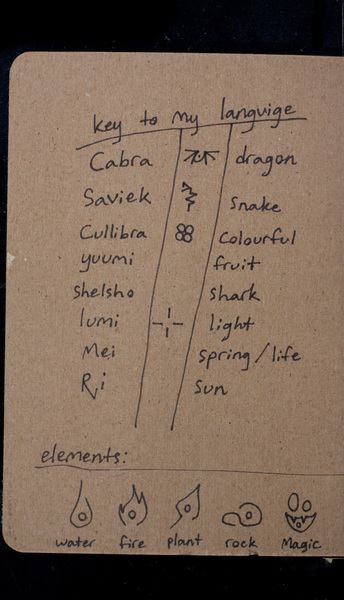 key to my langvige
Cabra dragon
Saviek snake
Cullibra colourful
yuumi fruit
shelsho shark
lumi light
Mei spring/life
Ri sun
elements:
water fire plant rock Magic